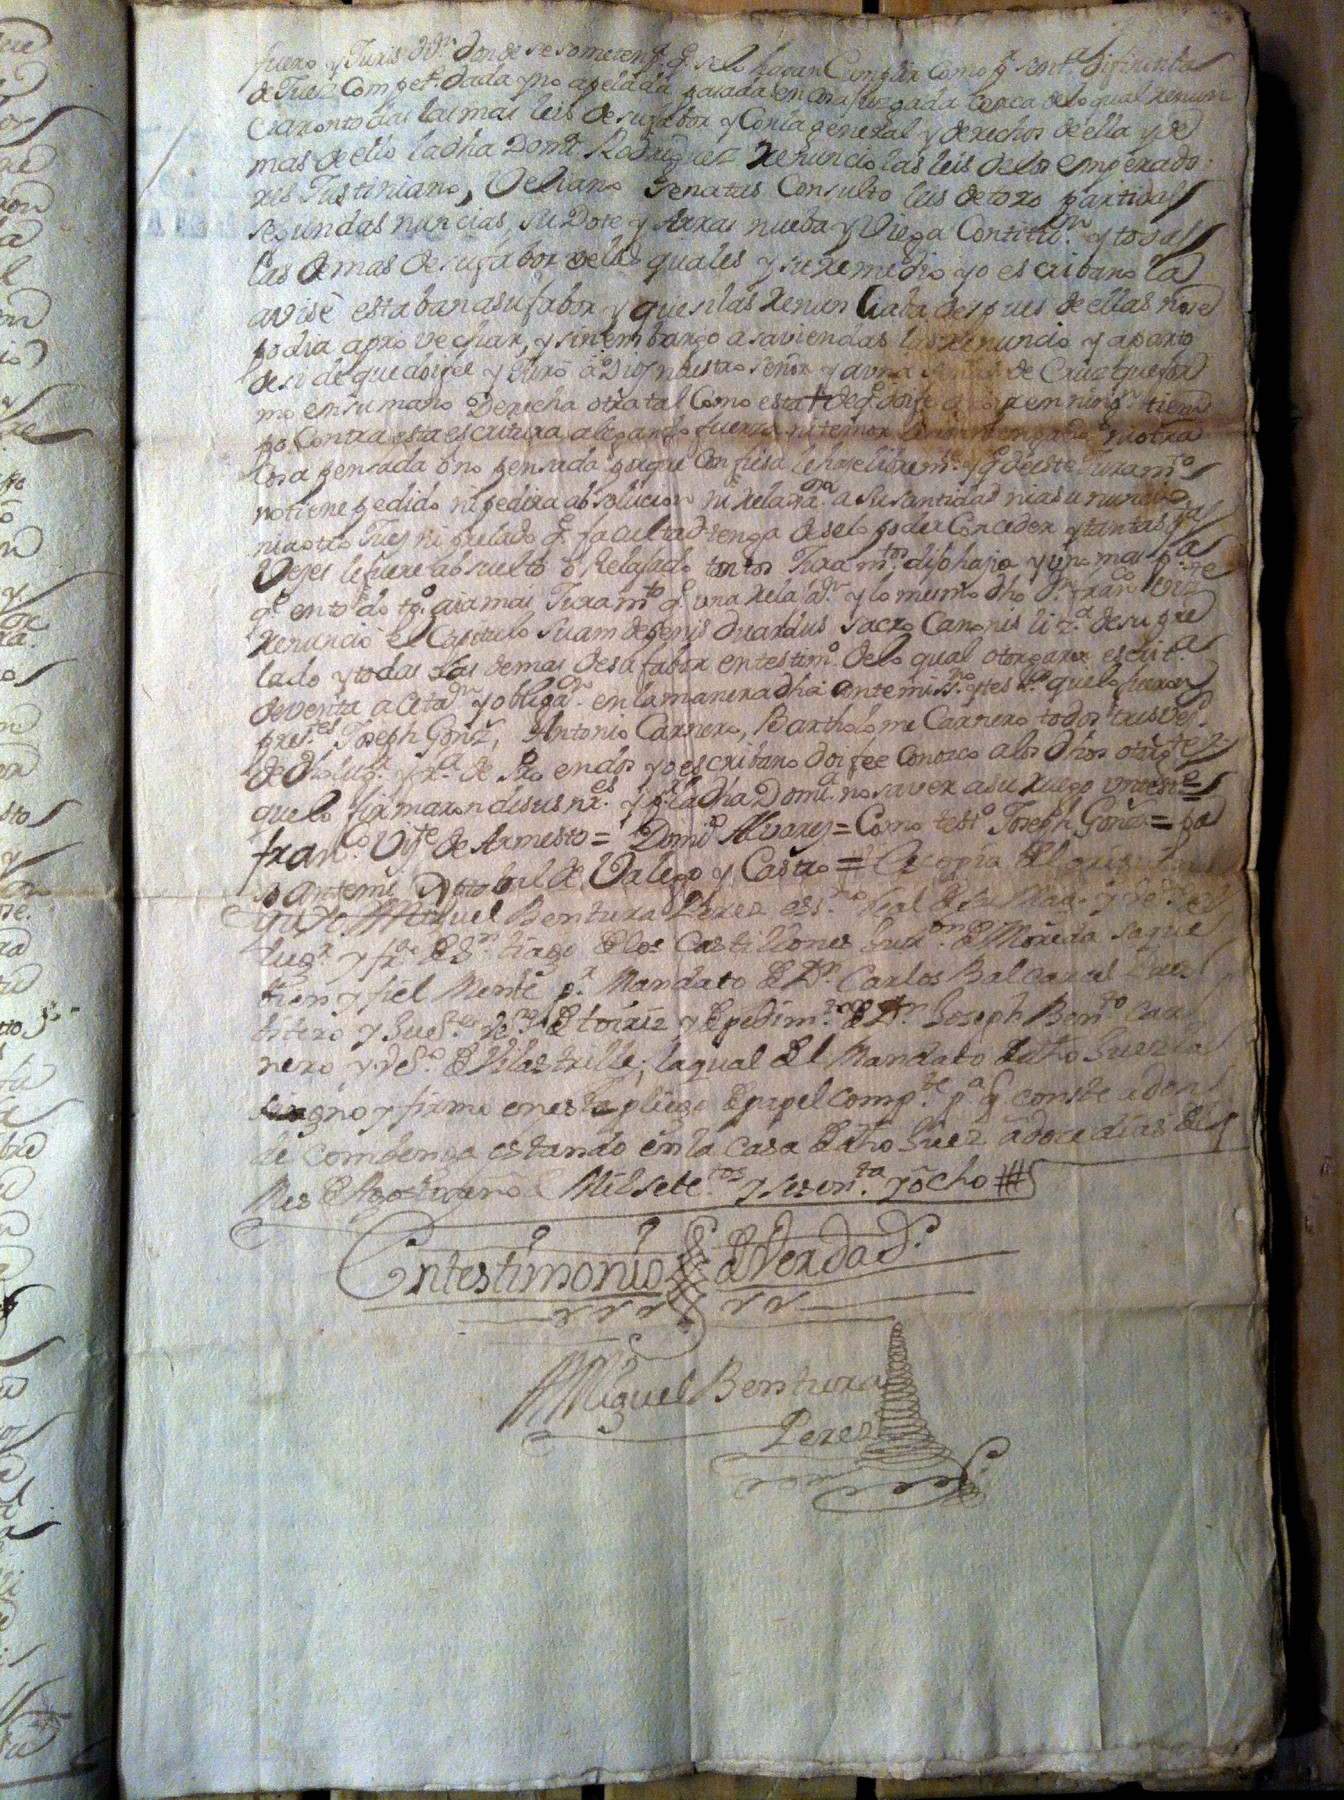 fuero y Juris d.on donde se someten p.a q.e se lo hagan Cumplir Como p.r sent.a difinitiva
de Juez Compet.te dada y no apelada pasada en Cosa juzgada cerca de lo qual renun
ciaron todas las mas leis de su fabor y Con la general y derechos de ella y de
mas de ello la dha Dom.a Rodriguez Renuncio las leis de los emperado
res Justiniano, Veliano senatus Consulto leis de toro partidas
segundas nuncias, su Dote y Arras nueba y Viega Contitu.on y todas
las demas de su fabor de las quales y su remedio yo escribano la
avisè estaban a su fabor y que si las renunciaba despues de ellas no se
podia aprovechar, y sin embargo a saviendas las Renuncio y aparto
de si de que doi fee y Juro a Dios nuestro señor y a una señal de Cruz que for
mo en su mano Derecha otra tal Como esta + de q.e doi fe no ir en ning.n tiem
po Contra esta escritura alegando fuerza ni temor ni otra
Cosa pensada ô no pensada porque Confiesa la hase librem.te y q.e deeste Juram.to
no tiene pedido ni pedira absolucion ni relax.on a Su santidad ni a su nuncio
ni a otro Juez ni prelado q.e facultad tenga de se lo poder Conceder y tantas q.tas
Vezes le fuere absuelto ô Relajado tantos Juram.tos dijo hajia y uno mas p.a
q.e en todo tp.o aia mas Juram.to q.e una relaxa.on y lo mismo dho D.n Fran.co Vizte
Renunciò el Capitulo suam de penis Oduardus sacro Canonis liz.a de su pre
lado y todas las demas de sa fabor en testim.o de lo qual otorgaron escrit.a
de venta aceta.on y obliga.on en la manera dha ante mi ss.no y tes.os que lo fueron
pres.tes Joseph Gonz, Antonio Carnero, Bartholome Carnero todos tres vez.s
de dho lug.r y fr.a de S.tio en dos y yo escribano doi fee Conozco a los dhos otorg.tes
que lo firmaron de sus nr.es y p.r la dha Domi.a no saver a su Ruego un test.o =
fran.co Viz.te de Armesto = Domi.o Alvarez = Como testi.o Joseph Gonz = pa
so ante mi Xptobal de Valego y Castro = Es copia del
que yo Miguel Bentura Perez ess.no Real de Su Mag. y vz.o del
lug.r y fr.a de S.n tiago de los Castillones Jur.on de Moreda saque
vien y fiel Mente p.r Mandato de D.n Carlos Balcarcel
titero y Juez de toiriz y de pedim.to de D.n Joseph Ben.to Car
nero y vz.o de Vilastrille, la qual de el Mandato de dho Juez la
signo y firmo en este pliego de papel comp.te p.a q.e conste a don
de combenga estando en la casa de dho Juez a doce dias del
Mes de Agosto año Mil sete.tos y sesen.ta y ocho ##
En testimonio de Verdad.
Miguel Bentura
Perez